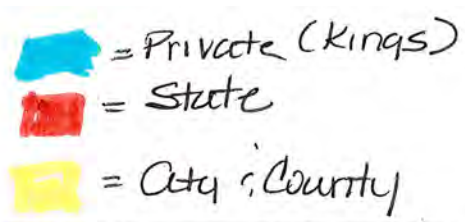 = Private (Kings)
= State
= City & County